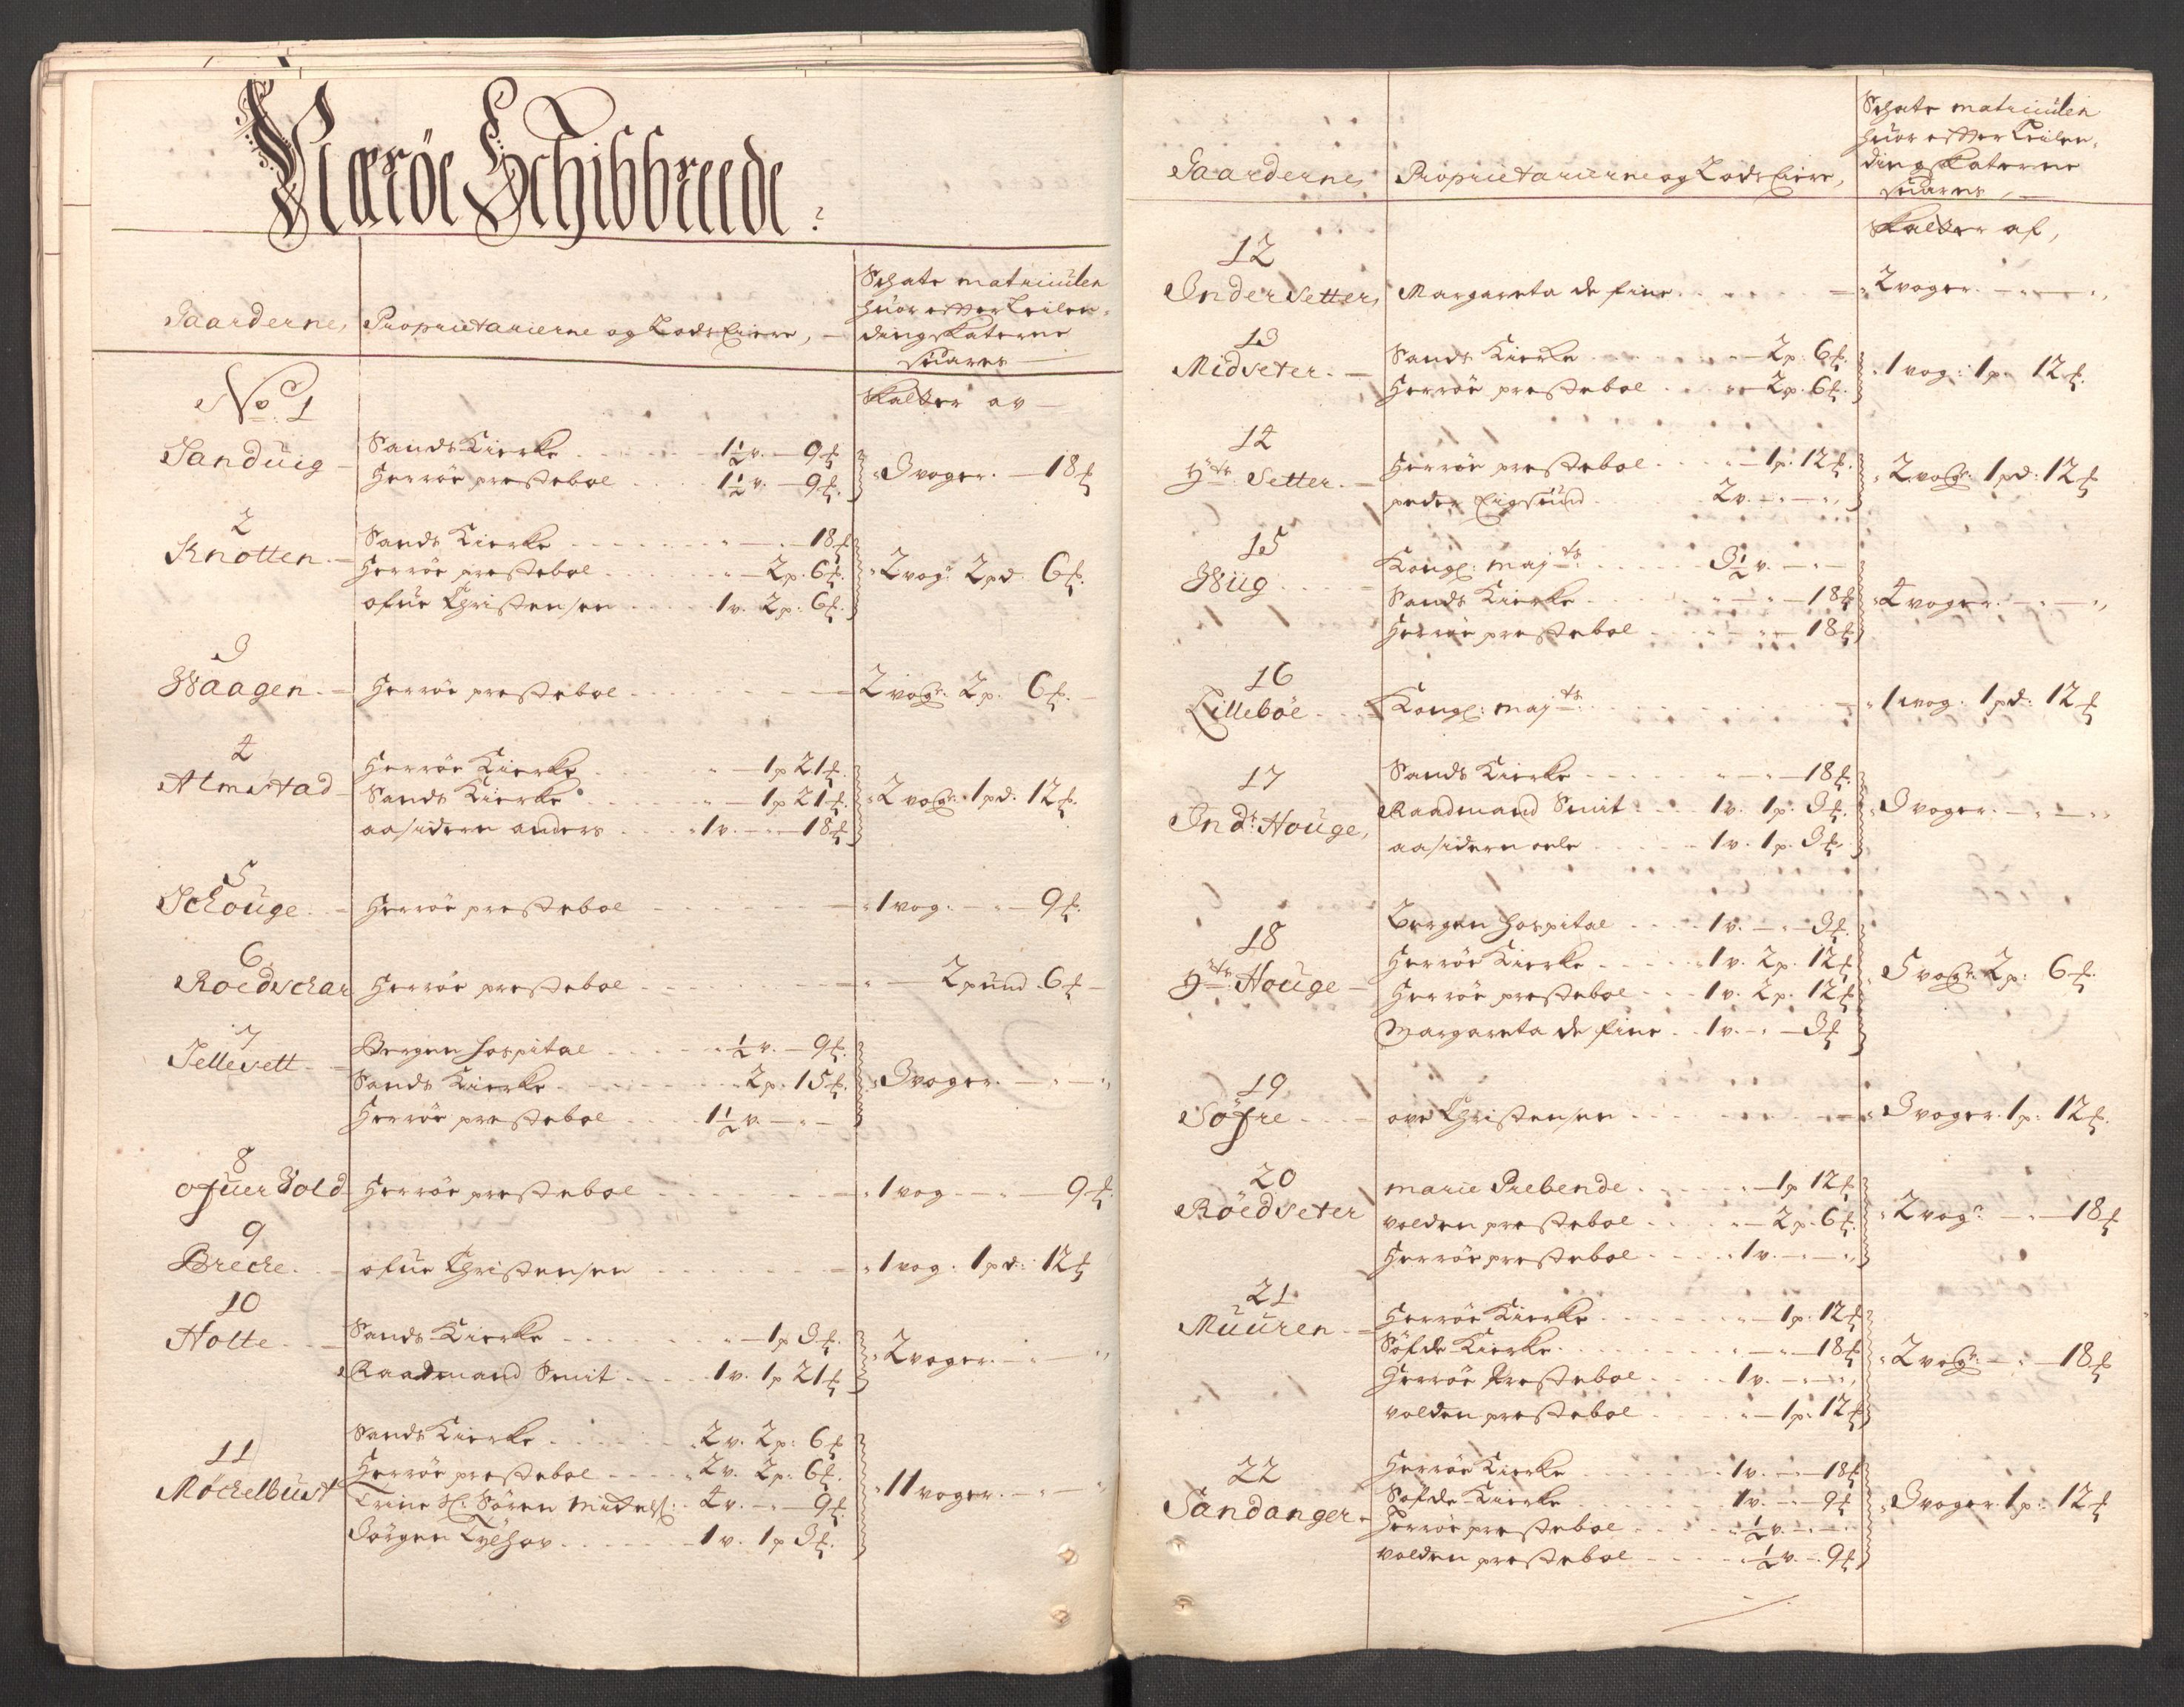 Nærøe Schibbreede
Gaarderne, Proprietarierne og Lods Eiere, Schate matriculen
huor effter Leilen-
dingskaterne
suares
Skatter av
No. 1
Sanduig
Sands Kierke 1½ v. 9 ℔.
Herröe prestebol 1½ v. 9 ℔.
3 voger. 18 ℔
2
Knotten
Sands Kierke 18 ℔
Herröe prestebol 2 p. 6 ℔.
ofue Christensen 1 v. 2 p: 6 ℔.
2 vogr 2 pd. 6 ℔.
3
Waagen
Herröe prestebol
2 vogr. 2 p. 6 ℔.
4
Almstad
Herröe Kierke 1 p 21 ℔.
Sands Kierke 1 p 21 ℔.
aasidern anders 1 v. 18 ℔
2 vogr. 1 pd. 12 ℔.
5
Schouge
Herröe prestebol
1 vog. 9 ℔.
6
Roedschar
Herröe prestebol
2 pund. 6 ℔
7
Jellesett
Bergen hospital ½ v. 9 ℔.
Sands Kierke 2 p. 15 ℔.
Herröe prestebol 1½ v.
3 voger.
8
ofuer Vold
Herröe prestebol
1 vog 9 ℔.
9
Breche
ofue Christensen
1 vog. 1 pd: 12 ℔
10
Holte
Sands Kierke 1 p 3 ℔.
Raadmand Smit 1 v. 1 p 21 ℔
2 voger.
11
Möchelbust
Sands Kierke 2 v. 2 p: 6 ℔
Herröe prestebol 2 v. 2 p: 6 ℔.
Trine Sl: Sören 4 v. 9 ℔.
Jörgen 1 v. 1 p 3 ℔.
11 voger.
Gaarderne, Proprietarierne og Lods Eiere,
Schate matriculen
huor effter Leilen-
dingskaterne
suares,
Skatter af,
12
Inder Setter,
Margareta de fine
2 voger.
13
Midseter
Sands Kierke 2 p: 6 ℔.
Herröe prestebol 2 p. 6 ℔.
1 vog: 1 p. 12 ℔.
14
Ytr Setter
Herröe prestebol 1 p. 12 ℔.
peder Eigsund 2 v.
2 vogr. 1 pd: 12 ℔
15
Wiig
Kongl: majts 3½ v.
Sands Kierke 18 ℔
Herröe prestebol 18 ℔
4 voger.
16
Lilleböe
Kongl: majts
1 vog. 1 pd: 12 ℔
17
Indr Houge,
Sands Kierke 18 ℔.
Raadmand Smit 1 v. 1 p. 3 ℔.
aasidern oele 1 v. 1 p. 3 ℔.
3 voger.
18
Ytr Houge
Bergen hospital 1 v. 3 ℔.
Herröe Kierke 1 v. 2 p. 12 ℔
Herröe prestebol 1 v. 2 p. 12 ℔
Margareta de fine 1 v. 3 ℔
5 vogr. 2 p: 6 ℔.
19
Söfre
ove Christensen
3 voger. 1 p: 12 ℔.
20
Röedseter
marie Prebende 1 p 12 ℔
volden prestebol 2 p. 6 ℔.
Herröe prestebol 1 v.
2 vogr. 18 ℔
21
Muuren
Herröe Kierke 1 p: 12 ℔
Söfde Kierke 18 ℔
Herröe Prestebol 1 v.
volden prestebol 1 p. 12 ℔
2 vogr. 18 ℔
22
Sandanger
Herröe Kierke 1 v. 18 ℔
Söfde Kierke 1 v. 9 ℔
Herröe prestebol ½ v.
volden prestebol ½ v. 9 ℔
3 voger. 1 p: 12 ℔